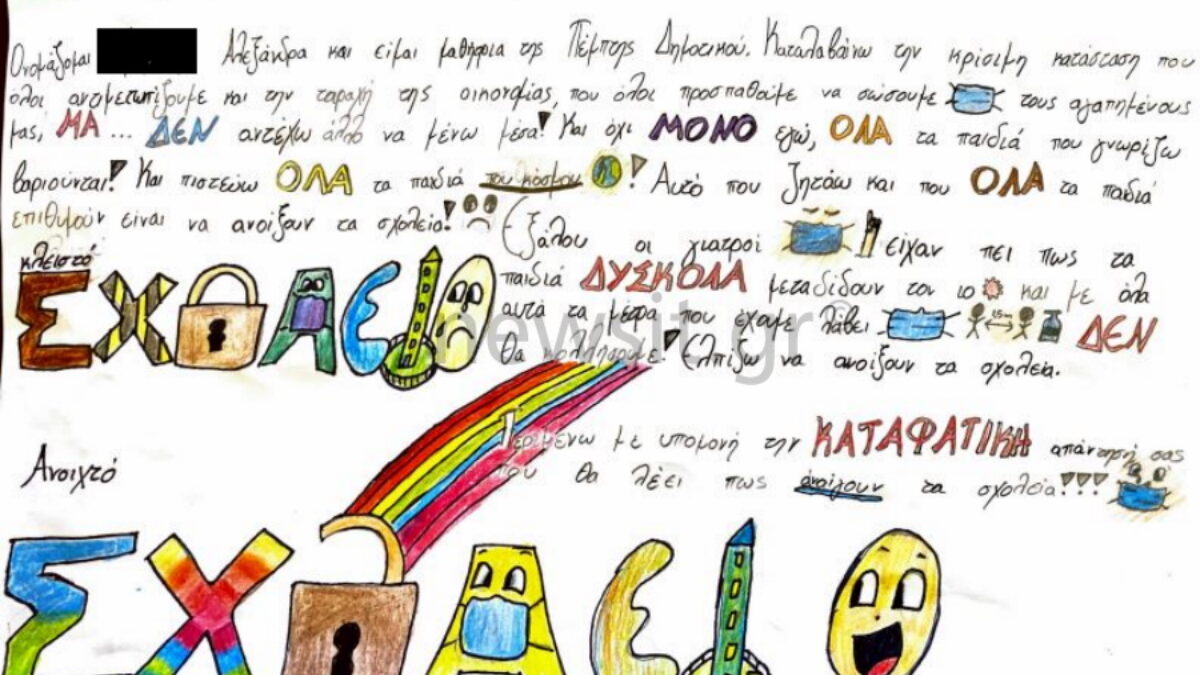 Ονομάζομαι Αλεξάνδρα και είμαι μαθήτρια της Πέμπτης Δημοτικού. Καταλαβαίνω την κρίσιμη κατάσταση που
όλοι αντιμετωπίζουμε και την ταραχή της οικονομίας, που όλοι προσπαθούμε να σώσουμε τους αγαπημένους
μας, ΜΑ ... ΔΕΝ αντέχω άλλο να μένω μέσα! Και όχι ΜΟΝΟ εγώ, ΟΛΑ τα παιδιά που γνωρίζω
βαριούνται! Και πιστεύω ΟΛΑ τα παιδιά του κόσμου! Αυτό που ζητάω και που ΟΛΑ τα παιδιά
επιθυμούν είναι να ανοίξουν τα σχολεία! Εξάλου οι γιατροί είχαν πει πως τα
παιδιά ΔΥΣΚΟΛΑ μεταδίδουν τον ιο και με όλα
αυτά τα μέτρα που έχουμε λάβει 1,5m ΔΕΝ
θα κολλήσουμε! Ελπίζω να ανοίξουν τα σχολεία.
κλειστό
ΣΧΟΛΕΙΟ
Περιμένω με υπομονή την ΚΑΤΑΦΑΤΙΚΗ απάντησή σας
που θα λέει πως ανοίγουν τα σχολεία!!!
Ανοιχτό
ΣΧΟΛΕΙΟ
newsit.gr